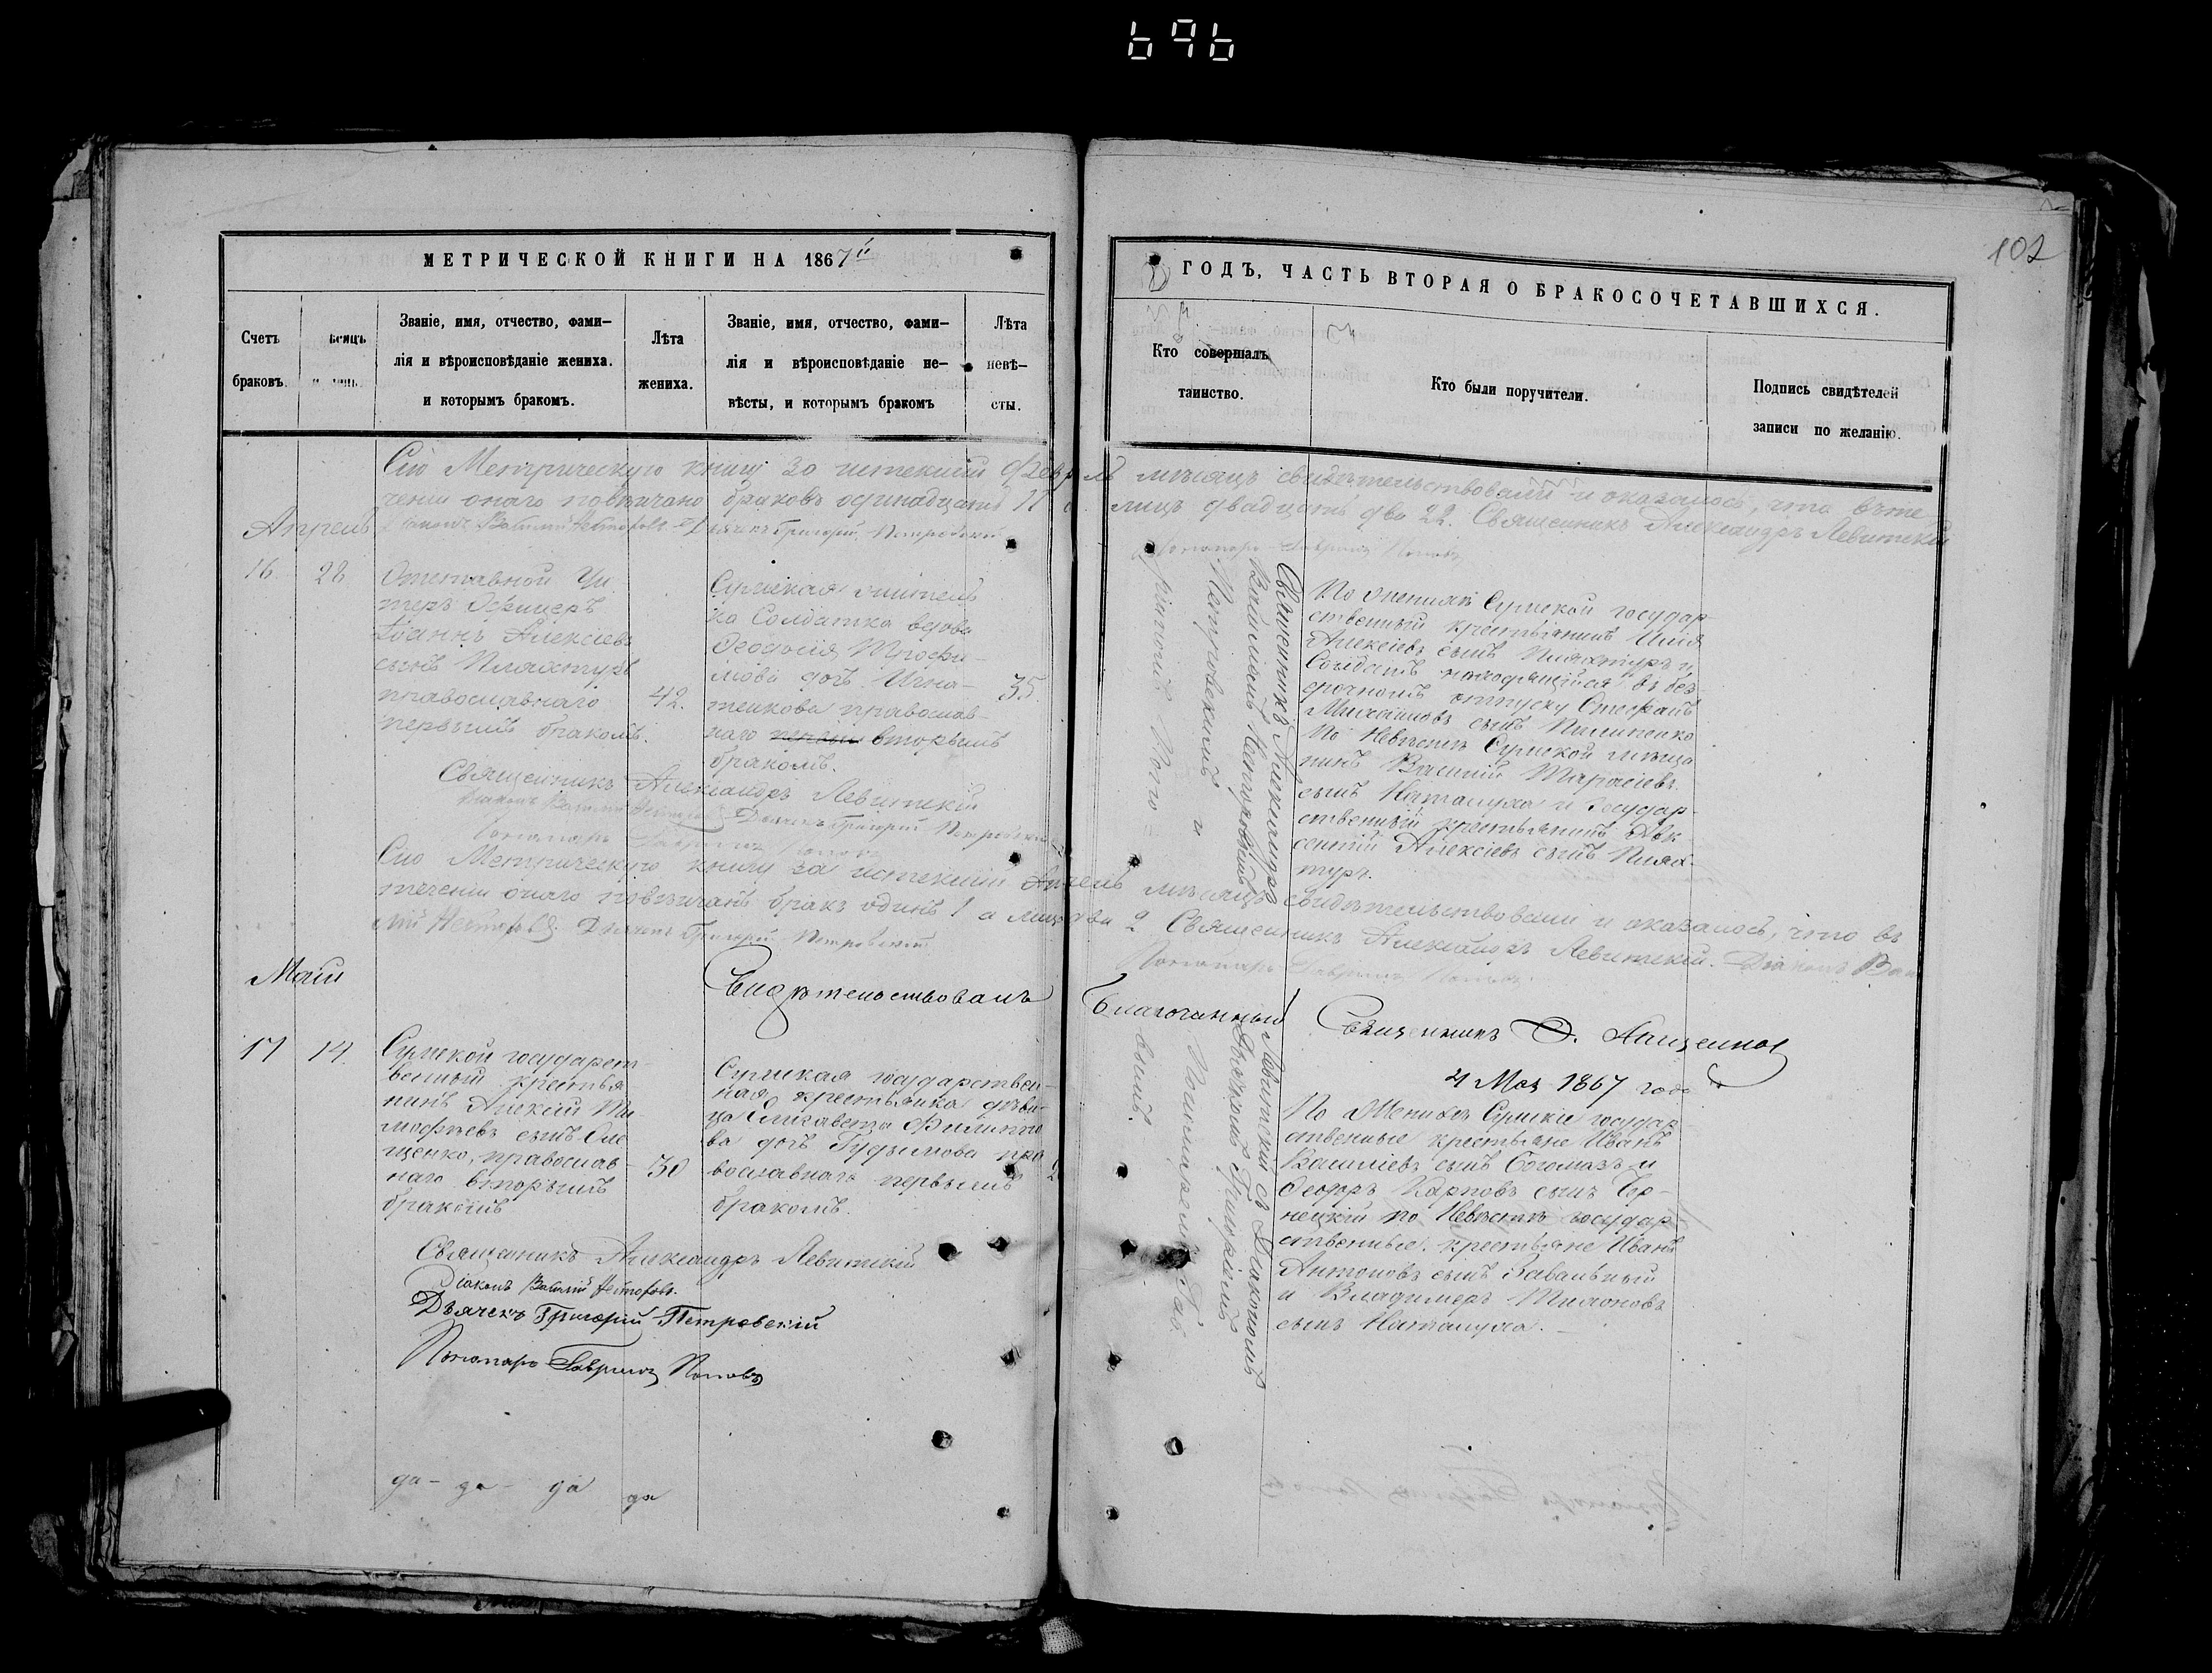 696
102
МЕТРИЧЕСКОЙ КНИГИ НА 1867й
ГОДЪ, ЧАСТЬ ВТОРАЯ О БРАКОСОЧЕТАВШИХСЯ.
Счетъ
браковъ.
Званіе, имя, отчество, фами-
лія и вѣроисповѣданіе жениха.
и которымъ бракомъ.
Лѣта
жениха.
Званіе, имя, отчество, фами-
лія и вѣроисповѣданіе не-
вѣсты, и которымъ бракомъ
Лѣта
невѣ-
сты.
Кто совершалъ
таинство.
Кто были поручители.
Подпись свидѣтелей
записи по желанію.
Сію Метрическую книгу за истекшій Февраль мѣсяцъ свидѣтельствовали и оказалось, что въ те
ченіи онаго повѣнчано браковъ одинадцать 11 лицъ двадцать два 22. Священникъ Александръ Левитскій
Діаконъ Василій Несторовъ Дьячекъ Григорій Петровскій
Пономарь Гавріилъ Поповъ
Апрель
16
28
Отставной Ун
теръ Офицеръ
Іоаннъ Алексіевъ
сынъ Пляхтуръ
православнаго
первымъ бракомъ.
42.
Сумская житель
ка Солдатка вдова
Феодосія Трофи-
мова дочь Игна-
тенкова православ-
наго вторымъ
бракомъ.
35
Священникъ Александръ
Левитскій съ Діакономъ
Василіемъ Несторовымъ
Дьячкомъ Григоріемъ
Петровскимъ и
Пономаремъ Гав
ріиломъ Попо
вымъ.
По женихѣ Сумской государ-
ственный крестьянинъ Илія
Алексіевъ сынъ Пляхтуръ и
Солдатъ находящійся въ без-
срочномъ отпуску Стефанъ
Михаиловъ сынъ Пилипенко
По Невѣстѣ Сумской мѣща
нинъ Василій Тарасіевъ
сынъ Наталуха и Государ-
ственный крестьянинъ Авк
сентій Алексіевъ сынъ Плях-
туръ.
Священникъ Александръ Левитскій
Діаконъ Василій Несторовъ Дьячекъ Григорій Петровскій
Пономарь Гавріилъ Поповъ
Сію Метрическую книгу за истекшій Апрель мѣсяцъ свидѣтельствовали и оказалось, что въ
теченіи онаго повѣнчанъ бракъ одинъ 1 а лицъ два 2 Священникъ Александръ Левитскій. Діаконъ Васи
лій Несторовъ. Дьячекъ Григорій Петровскій
Пономарь Гавріилъ Поповъ.
Маій
Свидѣтельствовалъ Благочинный Священникъ
4 Мая 1867 года
17
14.
Сумской государст-
венный крестья
нинъ Алексій Ти-
мофѣевъ сынъ Оле
щенко, православ-
наго вторымъ
бракомъ
30
Сумская государствен-
ная крестьянка дѣви-
ца Елисавета Филиппо
ва дочь Гудимова пра
вославнаго первымъ
бракомъ.
По Женихѣ Сумскіе государ
ственные крестьяне Иванъ
Василіевъ сынъ Богомазъ и
Феодоръ Карповъ сынъ Чер-
нецкій по Невѣстѣ государ
ственные крестьяне Иванъ
Антоновъ сынъ Завальный
и Владимеръ Тихоновъ
сынъ Наталуха.
Священникъ Александръ Левитскій
Діаконъ Василій Несторовъ.
Дьячекъ Григорій Петровскій
Пономарь Гавріилъ Поповъ
да- да- да да